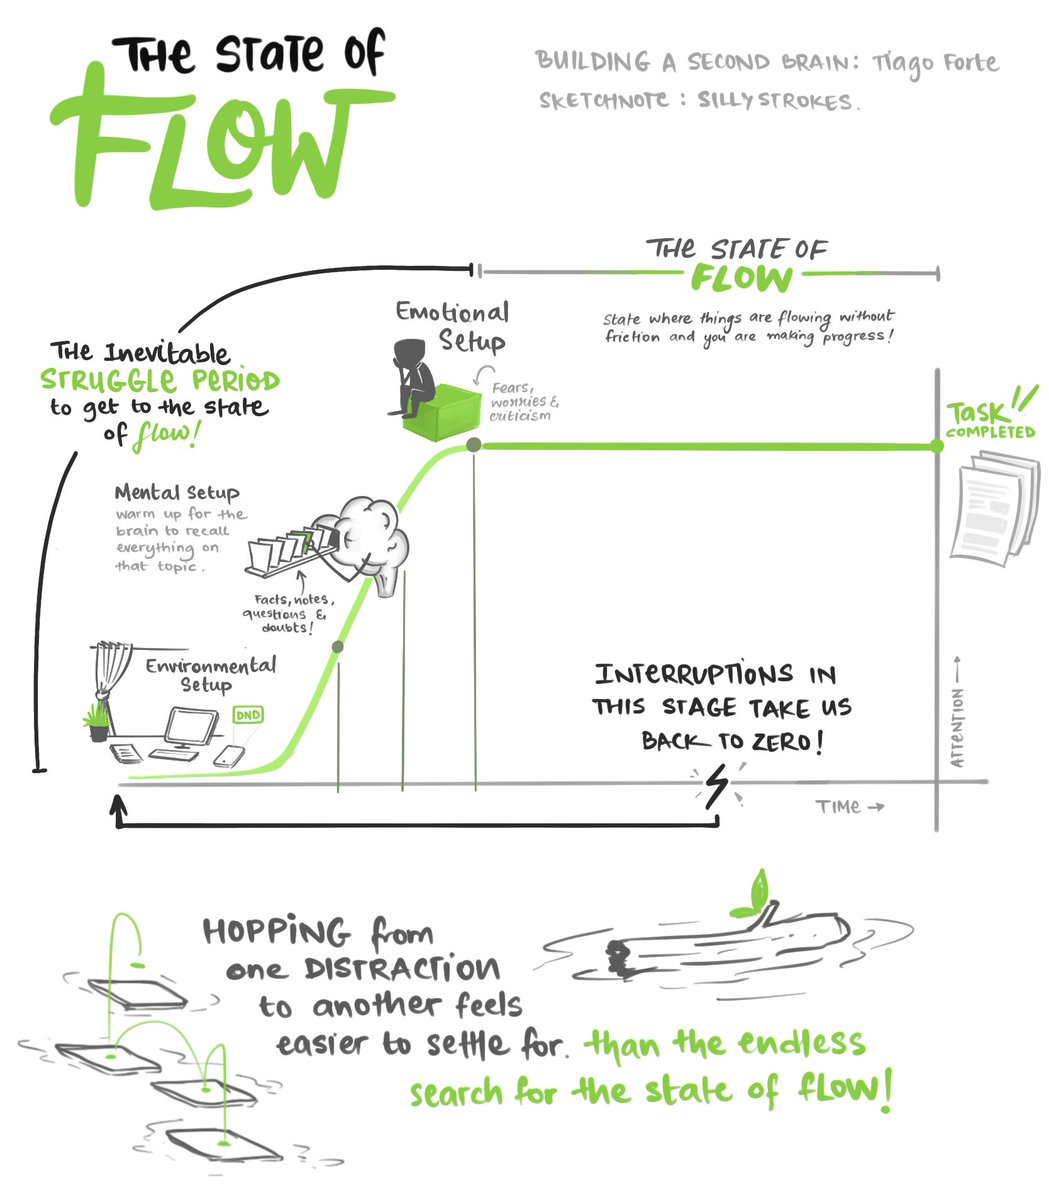 THE STATE OF
FLOW
BUILDING A SECOND BRAIN: Tiago Forte
SKETCHNOTE : SILLYSTROKES.
THE STATE OF
FLOW
State where things are flowing without
friction and you are making progress!
Emotional
Setup
Fears,
worries &
criticism
THE Inevitable
STRUGGLE PERIOD
to get to the state
of flow!
Task
COMPLETED
Mental Setup
warm up for the
brain to recall
everything on
that topic.
Facts, notes,
questions &
doubts!
Environmental
Setup
DND
INTERRUPTIONS IN
THIS STAGE TAKE US
BACK TO ZERO!
ATTENTION
TIME
HOPPING from
one DISTRACTION
to another feels
easier to settle for. than the endless
search for the state of flow!